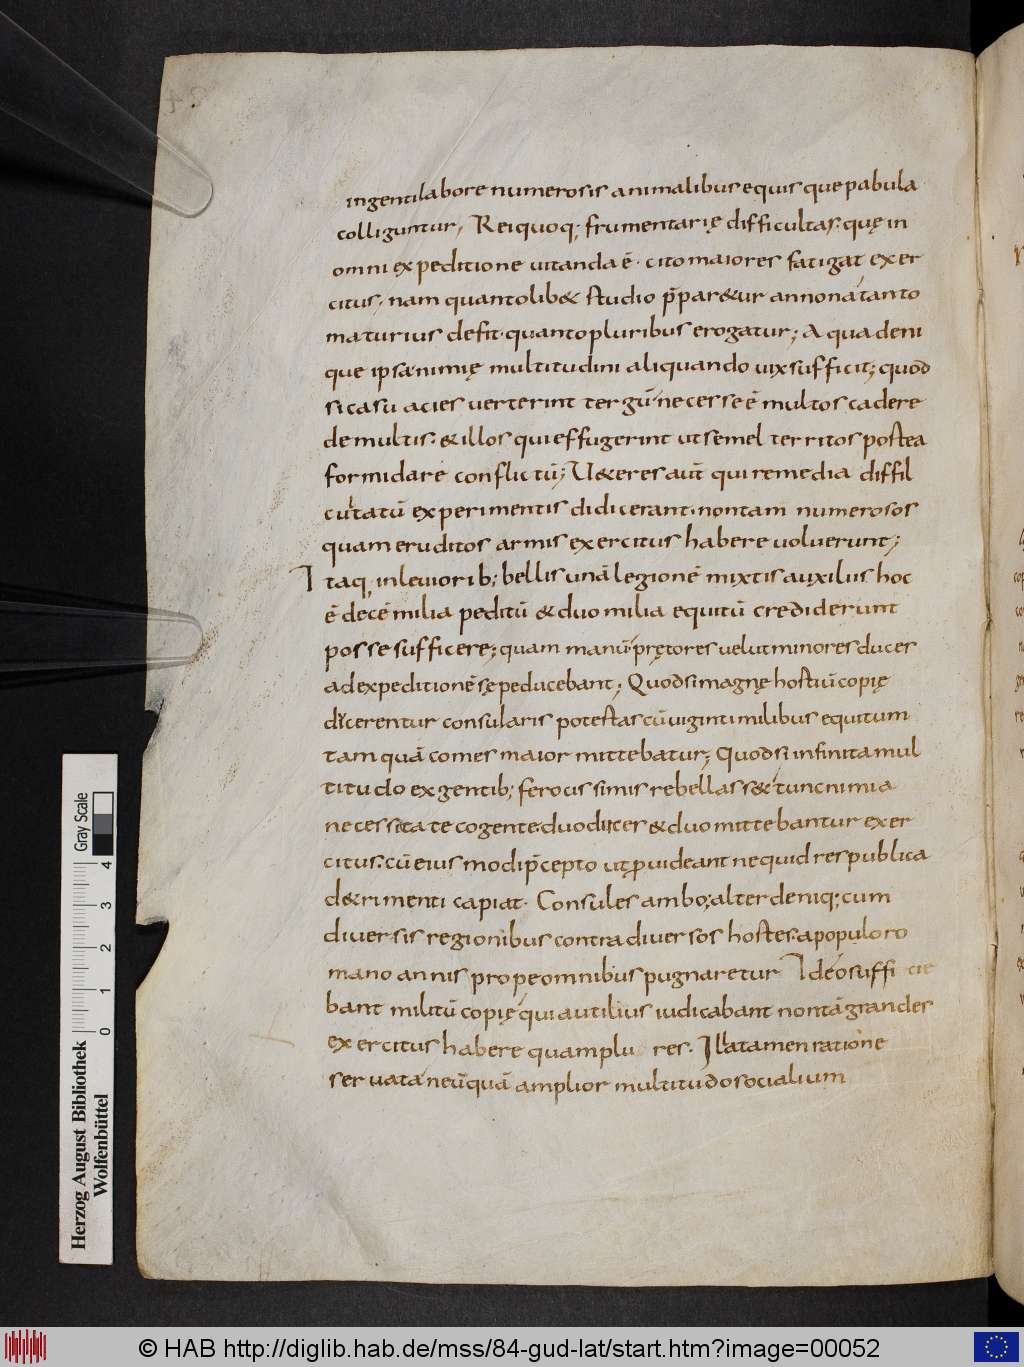 ingentilabore numerosis animalibus equis que pabula
colliguntur, Reiquoq; frumentarię difficultas. quę in
omni expeditione uitanda ē. cito maiores fatigat exer
citus, nam quantolib& studio p̄par&ur annona tanto
maturius defit. quanto pluribus erogatur; A qua deni
que ipsa nimię multitudini aliquando uix sufficit; quod
si casu acies uerterint tergū necesse ē multos cadere
de multis. & illos qui effugerint ut semel territos postea
formidare conflictū; U&eres aūt qui remedia diffil
cultatū experimentis didicerant. non tam numerosos
quam eruditos armis exercitus habere uoluerunt;
Itaq; inleuiorib; bellis unā legionē mixtis auxiliis hoc
ē decē milia peditū & duo milia equitū crediderunt
posse sufficere; quam manū prętores uelut minores duces
ad expeditionē sępe ducebant; Quodsi magnę hostiū copię
dicerentur consularis potestas cū uiginti milibus equitum
tam quā comes maior mittebatur; Quodsi infinita mul
titudo ex gentib; ferocissimis rebellass& tunc nimia
necessitate cogente. duo duces & duo mittebantur exer
citus. cū eius modi p̄cepto ut puideant nequid res publica
d&rimenti capiat. Consules ambo; alter deniq; cum
diuersis regionibus contra diuersos hostes. a populo ro
mano annis prope omnibus pugnaretur Ideo suffi cie
bant militū copię qui a utilius iudicabant non tā grandes
exercitus habere quam plu res. Illa tamen ratione
seruata ne ūquā amplior multitudo socialium
Herzog August Bibliothek
Wolfenbüttel
Gray Scale
0 1 2 3 4
© HAB http://diglib.hab.de/mss/84-gud-lat/start.htm?image=00052